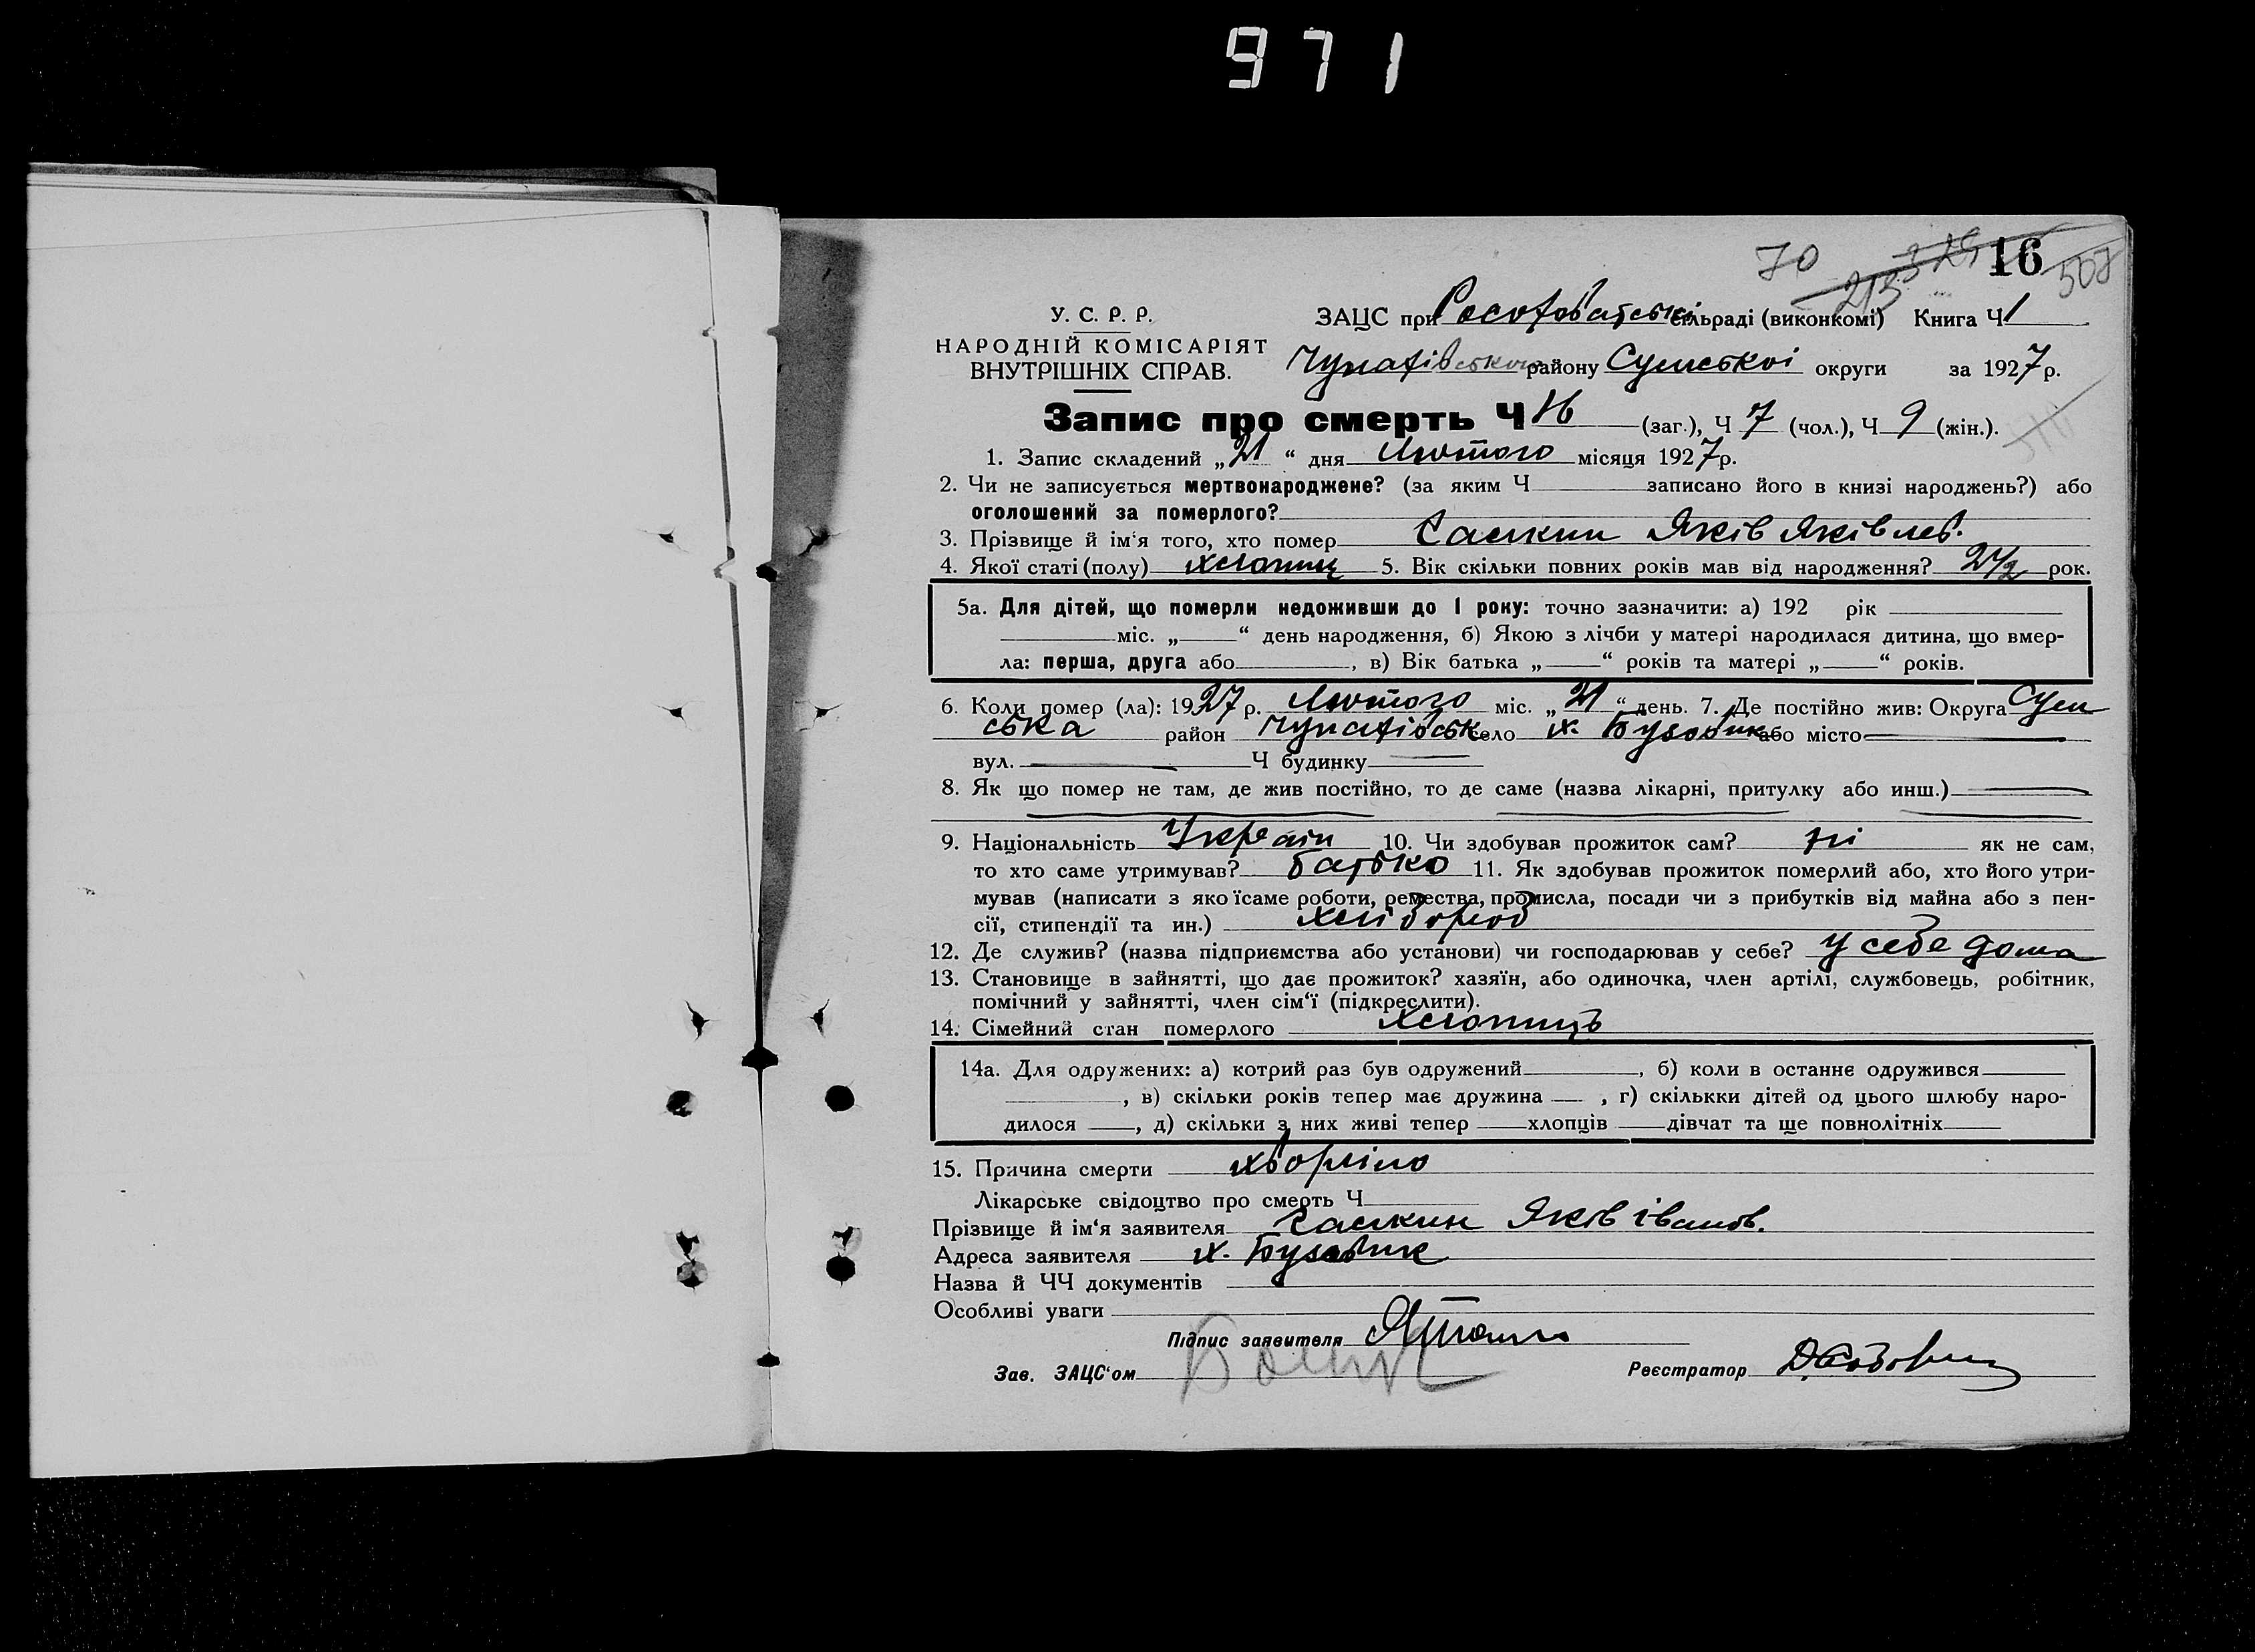 971
70 213 325 16 508
У. С. Р. Р.
ЗАЦС при сільраді (виконкомі) Книга Ч 1
НАРОДНІЙ КОМІСАРІЯТ
ВНУТРІШНІХ СПРАВ.
Чупахівського району Сумської округи за 1927 р.
Запис про смерть Ч 16 (заг.), Ч 7 (чол.), Ч 9 (жін.).
1. Запис складений „21“ дня Лютого місяця 1927 р.
2. Чи не записується мертвонароджене? (за яким Ч записано його в книзі народжень?) або
оголошений за померлого?
3. Прізвище й ім‘я того, хто помер Яків Яківлев.
4. Якої статі (полу) хлопиц 5. Вік скільки повних років мав від народження? 2 1/2 рок.
5а. Для дітей, що померли недоживши до 1 року: точно зазначити: а) 192 рік
міс. „ “ день народження, б) Якою з лічби у матері народилася дитина, що вмер-
ла: перша, друга або , в) Вік батька „ “ років та матері „ “ років.
6. Коли помер (ла): 1927 р. Лютого міс. „21“ день. 7. Де постійно жив: Округа Сум
ська район Чупахівськ село х. Бузовик або місто
вул. Ч будинку
8. Як що помер не там, де жив постійно, то де саме (назва лікарні, притулку або инш.)
9. Національність Україн 10. Чи здобував прожиток сам? ні як не сам,
то хто саме утримував? батько 11. Як здобував прожиток померлий або, хто його утри-
мував (написати з яко їсаме роботи, ремества, промисла, посади чи з прибутків від майна або з пен-
сії, стипендії та ин.) хлібороб
12. Де служив? (назва підприємства або установи) чи господарював у себе? у себе дома
13. Становище в зайнятті, що дає прожиток? хазяїн, або одиночка, член артілі, службовець, робітник,
помічний у зайнятті, член сім‘ї (підкреслити).
14. Сімейний стан померлого хлопиць
14а. Для одружених: а) котрий раз був одружений , б) коли в останнє одружився
, в) скільки років тепер має дружина , г) скількки дітей од цього шлюбу наро-
дилося , д) скільки з них живі тепер хлопців дівчат та ще повнолітніх
15. Причина смерти хворіло
Лікарське свідоцтво про смерть Ч
Прізвище й ім‘я заявителя Яків Іванов.
Адреса заявителя х. Бузовик
Назва й ЧЧ документів
Особливі уваги
Підпис заявителя
Зав. ЗАЦС‘ом Реєстратор